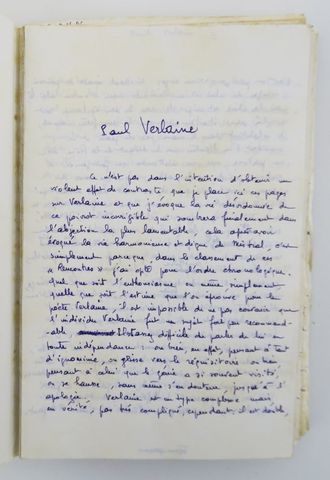 Paul Verlaine
Ce n'est pas dans l'intention d'obtenir un
violent effet de contraste que je place ici ces pages
sur Verlaine et que j'évoque la vie désordonnée de
ce poivrot incorrigible qui sombrera finalement dans
l'abjection la plus lamentable, cela après avoir
évoqué la vie harmonieuse et digne de Mistral, c'est
simplement parce que, dans le classement de ces
« Rencontres » j'ai opté pour l'ordre chronologique.
Quel que soit l'enthousiasme ou même simplement
quelle que soit l'estime que l'on éprouve pour le
poète Verlaine, il est impossible de ne pas convenir que
l'individu Verlaine fut un sujet fort peu recommand-
-able. Il est assez difficile de parler de lui en
toute indépendance : ou bien, en effet, pensant à tant
d'ignominie, on glisse vers le réquisitoire ou bien
pensant à celui que le génie a si souvent visité,
on se hausse, sans même s'en douter, jusqu'à l'
apologie. Verlaine est un type complexe mais,
en vérité, pas très compliqué, cependant, il est double,